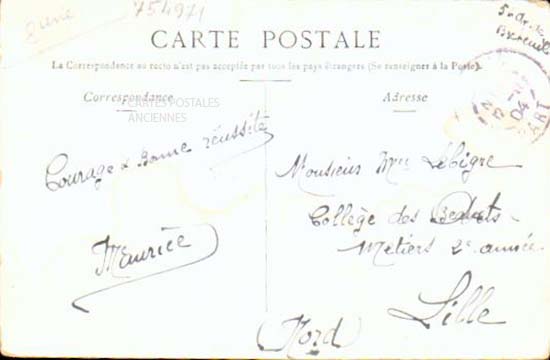 754971
CARTE POSTALE
La Correspondance au recto n'est pas acceptée par tous les pays étrangers (Se renseigner à la Poste)
Correspondance
Adresse
CARTES POSTALES
ANCIENNES
Courage & Bonne réussite
Maurice
Monsieur Mce Lebigre
Collège des
Métiers 2e année
Lille
(Nord)
04